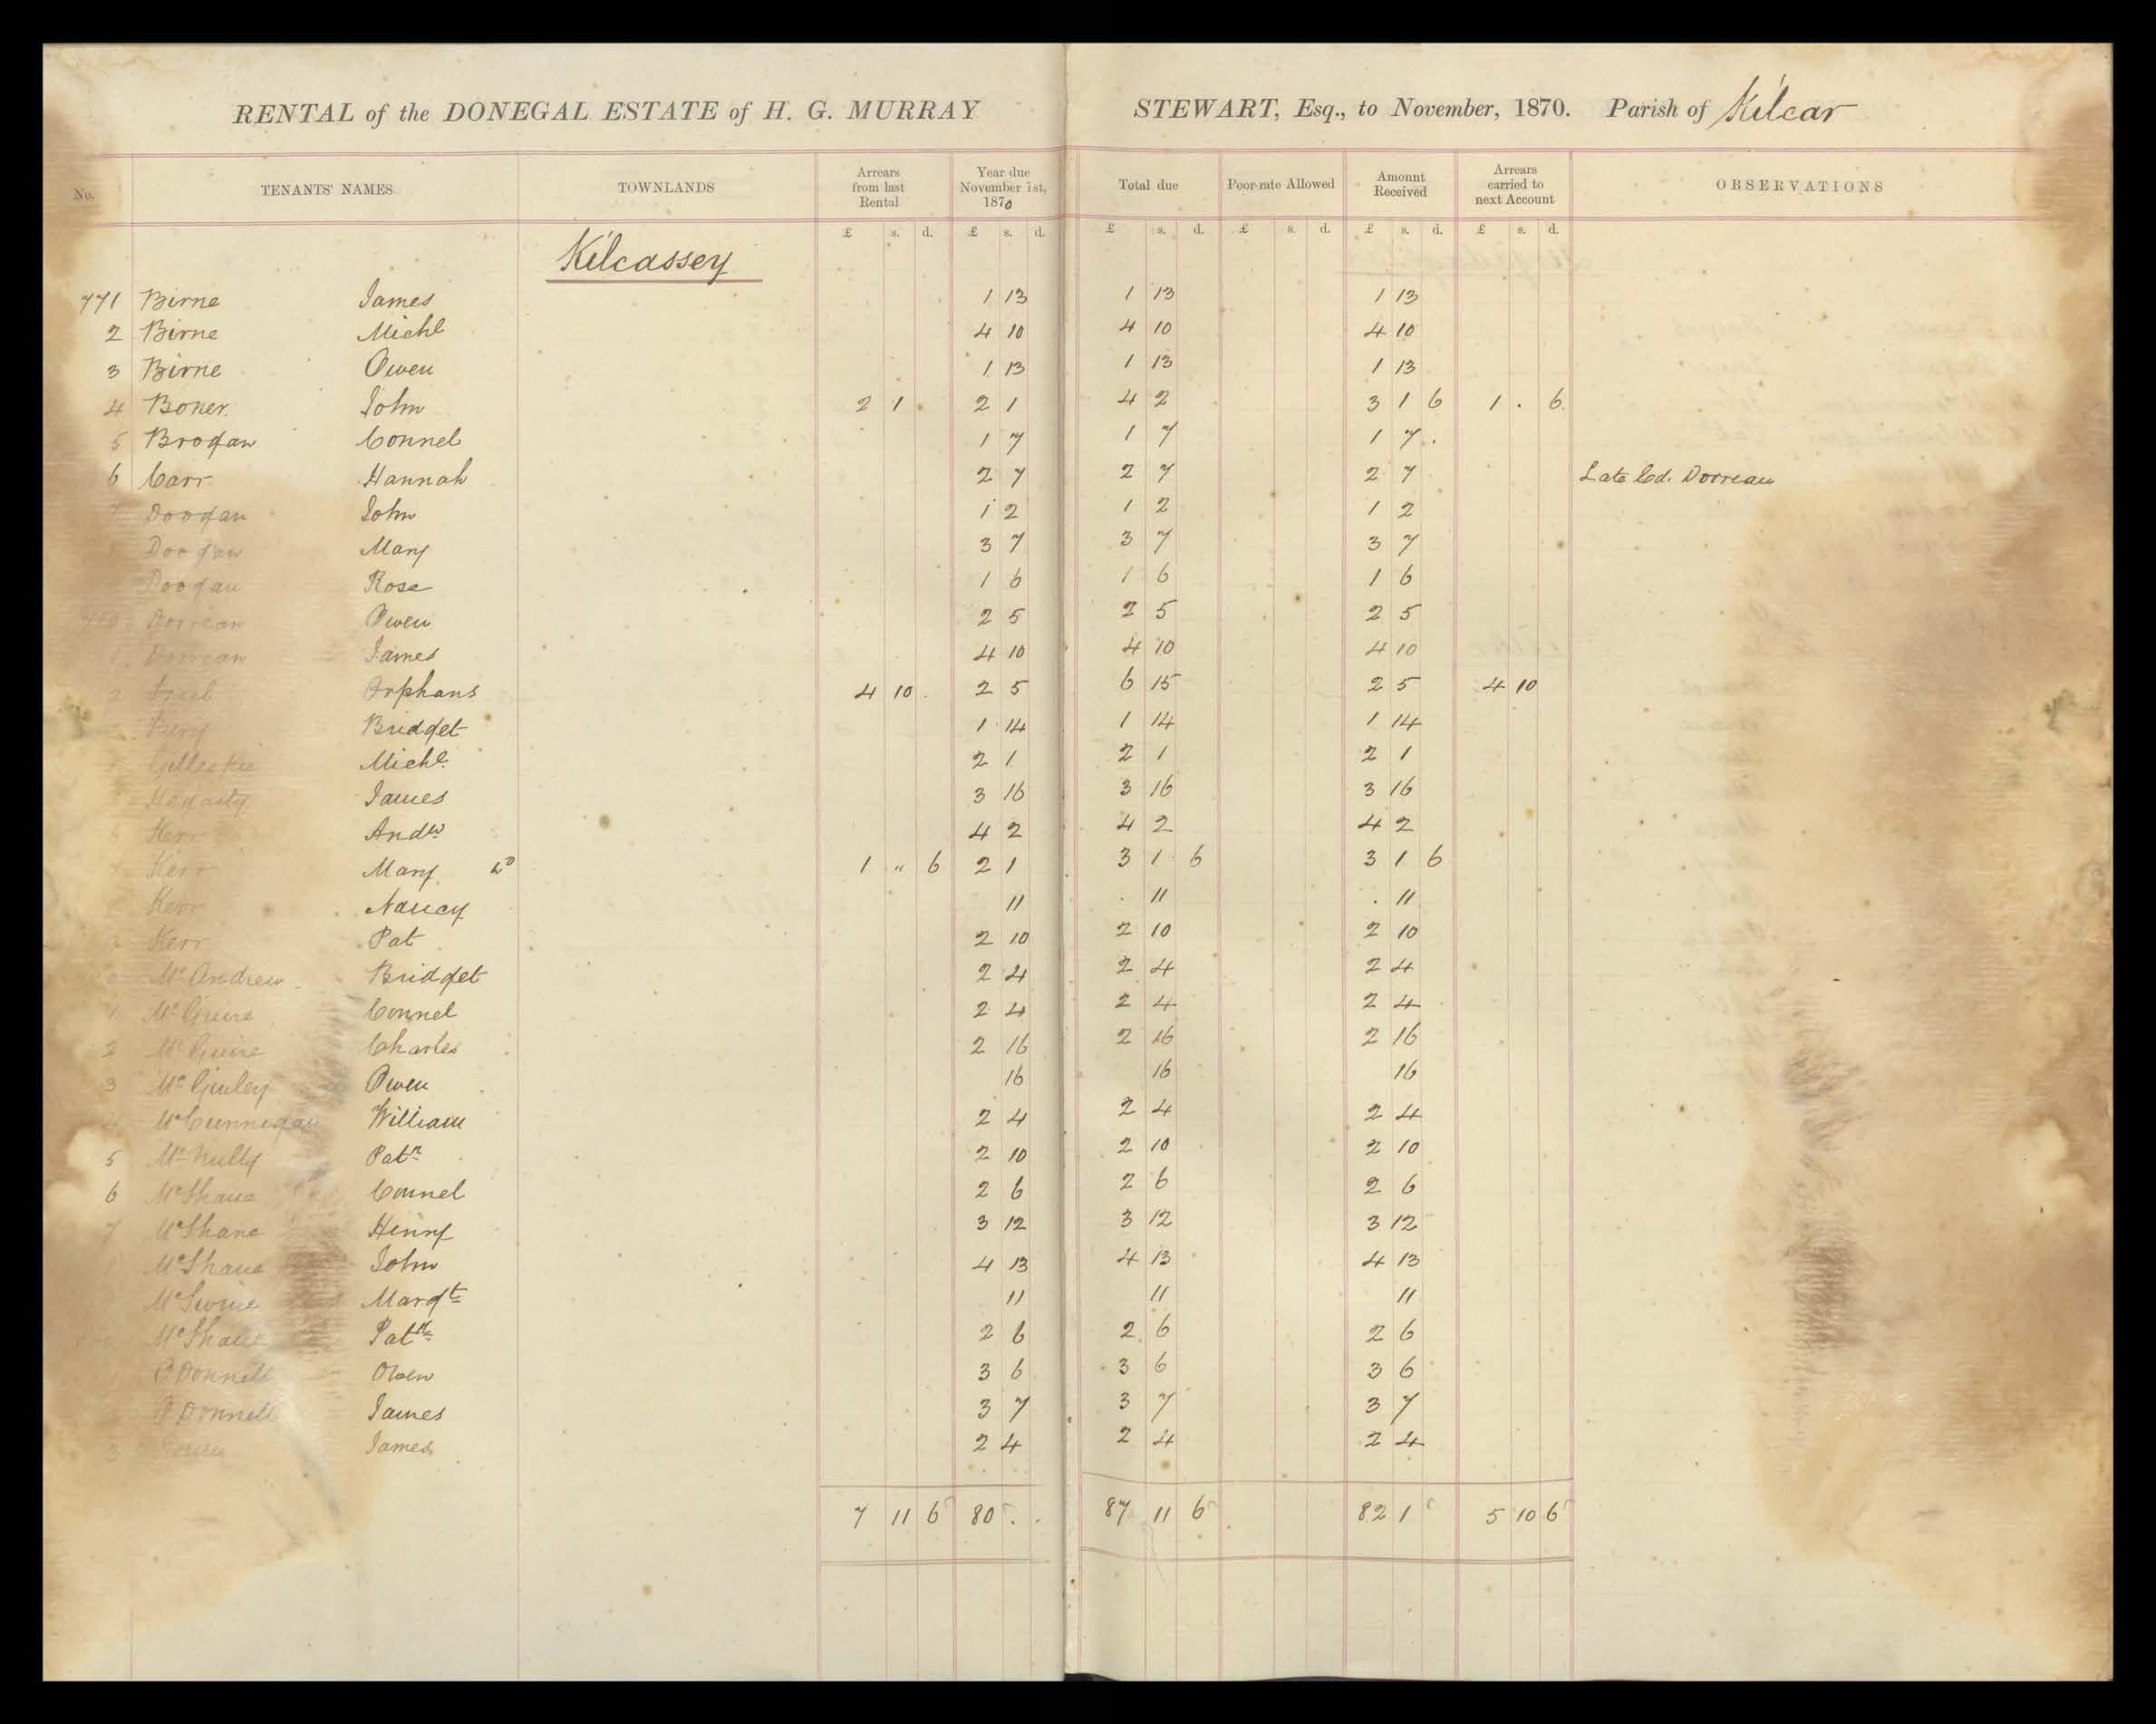 RENTAL of the DONEGAL ESTATE of H. G. MURRAY STEWART, Esq., to November, 1870. Parish of Kilcar
No. TENANTS' NAMES TOWNLANDS Arrears from last Rental Year due November 1st, 1870 Total due Poor-rate Allowed Amount Received Arrears carried to next Account OBSERVATIONS
£ s. d. £ s. d. £ s. d. £ s. d. £ s. d. £ s. d.
Kilcassey
771 Birne James 1 13 1 13 1 13
2 Birne Michl 4 10 4 10 4 10
3 Birne Owen 1 13 1 13 1 13
4 Boner John 2 1 . 2 1 4 2 3 1 6 1 . 6
5 Brogan Connel 1 7 1 7 1 7 .
6 Carr Hannah 2 7 2 7 2 7 Late Ed. Dorrean
7 Doogan John 1 2 1 2 1 2
Doogan Mary 3 7 3 7 3 7
Doogan Rose 1 6 1 6 1 6
Dorrean Owen 2 5 2 5 2 5
Dorrean James 4 10 4 10 4 10
2 Friel Orphans 4 10 . 2 5 6 15 2 5 4 10
Bridget 1 14 1 14 1 14
Gillespie Michl. 2 1 2 1 2 1
Hegarty James 3 16 3 16 3 16
Kerr Andw 4 2 4 2 4 2
7 Kerr Mary wd 1 " 6 2 1 3 1 6 3 1 6
Kerr Nancy 11 . 11 . 11
Kerr Pat 2 10 2 10 2 10
McAndrew Bridget 2 4 2 4 2 4
1 McGuire Connel 2 4 2 4 2 4
2 McGuire Charles 2 16 2 16 2 16
3 McGinley Owen 16 16 16
4 McCunnegan William 2 4 2 4 2 4
5 McNulty Patk 2 10 2 10 2 10
6 McShane Connel 2 6 2 6 2 6
7 McShane Henry 3 12 3 12 3 12
8 McShane John 4 13 4 13 4 13
McSwine Margt 11 11 11
McShane Patk 2 6 2 6 2 6
1 O'Donnell Owen 3 6 3 6 3 6
O'Donnell James 3 7 3 7 3 7
3 James 2 4 2 4 2 4
7 11 6 80 . . 87 11 6 82 1 5 10 6